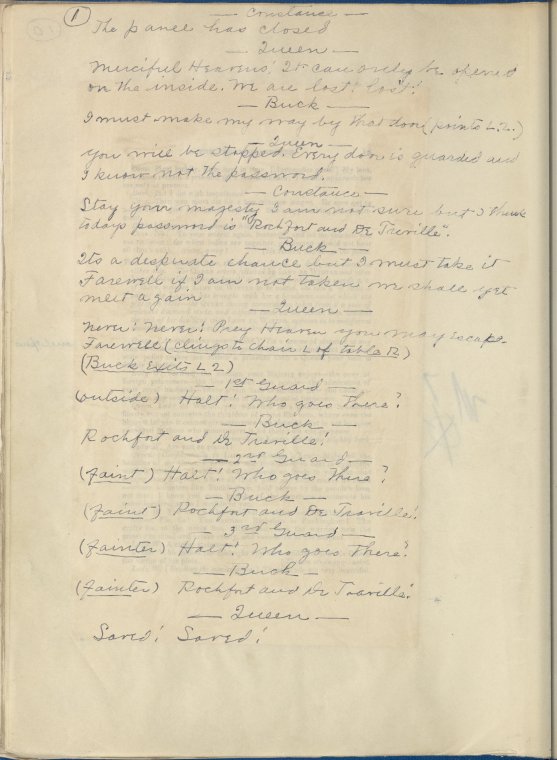 1
— Constance —
The panel has closed
— Queen —
Merciful Heavens! It can only be opened
on the inside. We are lost! lost!
— Buck —
I must make my way by that door (points L.2.)
— Queen —
You will be stopped. Every door is guarded and
I know not the password.
— Constance —
Stay your magesty I am not sure but I think
todays password is "Rochfort and De Treville".
— Buck —
Its a desperate chance but I must take it
Farewell if I am not taken we shall yet
meet again
— Queen —
Never! Never! Prey Heaven you may escape.
Farewell (clings to chair L of table R)
(Buck exits L 2)
— 1st Guard —
(outside) Halt! Who goes there?
— Buck —
Rochfort and De Treville!
— 2nd Guard —
(faint) Halt! Who goes there?
— Buck —
(faint) Rochfort and De Treville!
— 3rd Guard —
(fainter) Halt! Who goes there?
— Buck —
(fainter) Rochfort and De Treville!
— Queen —
Saved! Saved!